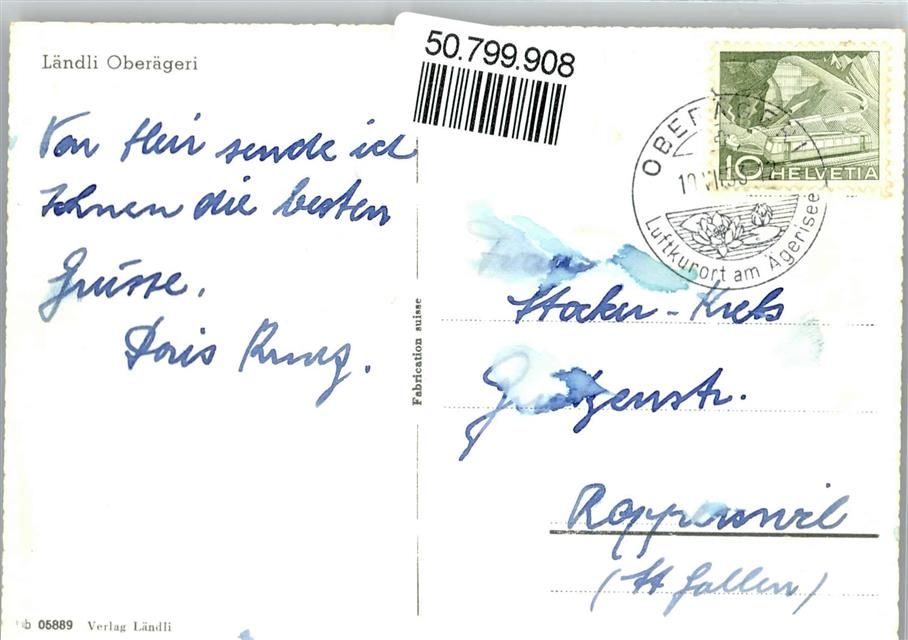 Ländli Oberägeri
50.799.908
Von Hier sende ich
Ihnen die besten
Grüsse.
Doris
10 HELVETIA
OBERÄGERI
Luftkurort am Ägerisee
Fabrication suisse
Frau
Stocker-Krebs
Rapperswil
(St Gallen)
05889 Verlag Ländli